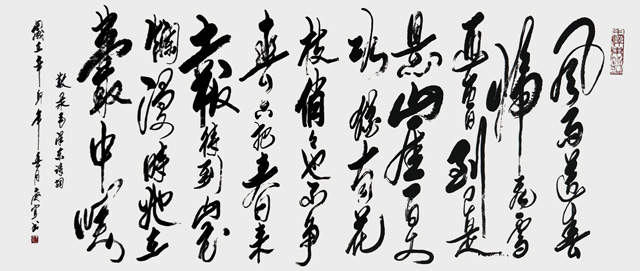 风雨送春
归飞雪
迎春到已是
悬崖百丈
冰犹有花
枝俏々也不争
春只把春来
报待到山花
烂漫时她在
丛中笑
毛泽东诗词